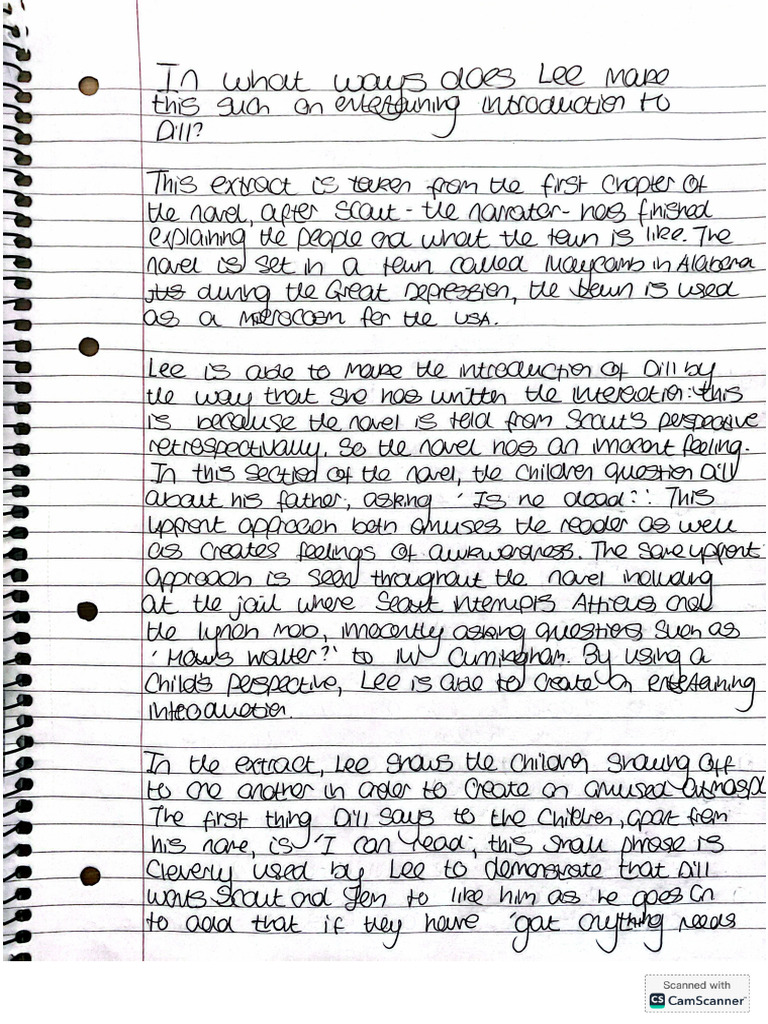 In what ways does Lee make
this such an entertaining introduction to
Dill?
This extract is taken from the first chapter of
the novel, after Scout - the narrator - has finished
explaining the people and what the town is like. The
novel is set in a town called Maycomb in Alabama
during the Great Depression, the town is used
as a microcosm for the USA.
Lee is able to make the introduction of Dill by
the way that she has written the interaction: this
is because the novel is told from Scout's perspective
retrospectivally. So the novel has an innocent feeling.
In this section of the novel, the children question Dill
about his father, asking 'Is he dead?'. This
upfront approach both amuses the reader as well
as creates feelings of awkwardness. The same upfront
approach is seen throughout the novel including
at the jail where Scout interrupts Atticus and
the lynch mob, innocently asking questions such as
'How's Walter?' to Mr Cunningham. By using a
Child's perspective, Lee is able to create an entertaining
introduction.
In the extract, Lee shows the children showing off
to one another in order to create an amused
The first thing Dill says to the children, apart from
his name, is 'I can read'; this small phrase is
cleverly used by Lee to demonstrate that Dill
wants Scout and Jem to like him as he goes on
to add that if they have 'got anything needs
Scanned with
CS CamScanner